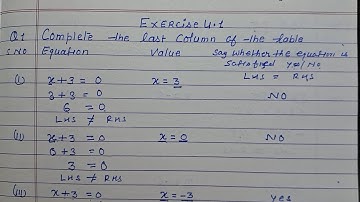 Exercise 4.1
Q1 Complete the last column of the table
S.NO Equation Value Say whether the equation is satisfied Yes/No
LHS = RHS
(i) x+3 = 0 x = 3
3+3 = 0 NO
6 = 0
LHS ≠ RHS
(ii) x+3 = 0 x = 0 NO
0+3 = 0
3 = 0
LHS ≠ RHS
(iii) x+3 = 0 x = -3 yes